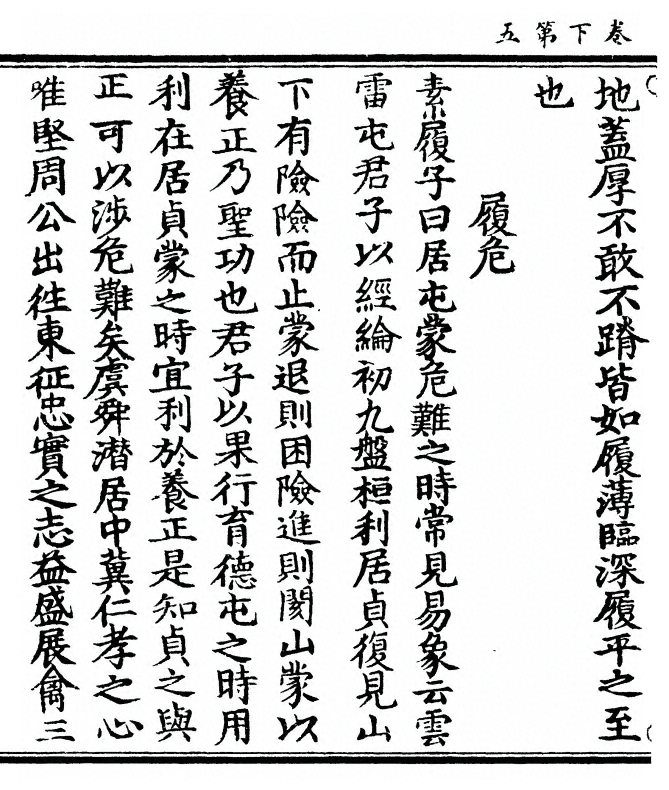 卷下第五
地蓋厚不敢不蹐皆如履薄臨深履平之至
也
履危
素履子曰居屯蒙危難之時常見易象云雲
雷屯君子以經綸初九盤桓利居貞復見山
下有險險而止蒙退則困險進則閡山蒙以
養正乃聖功也君子以果行育德屯之時用
利在居貞蒙之時宜利於養正是知貞之與
正可以涉危難矣虞舜潛居中冀仁孝之心
唯堅周公出往東征忠實之志益盛展禽三